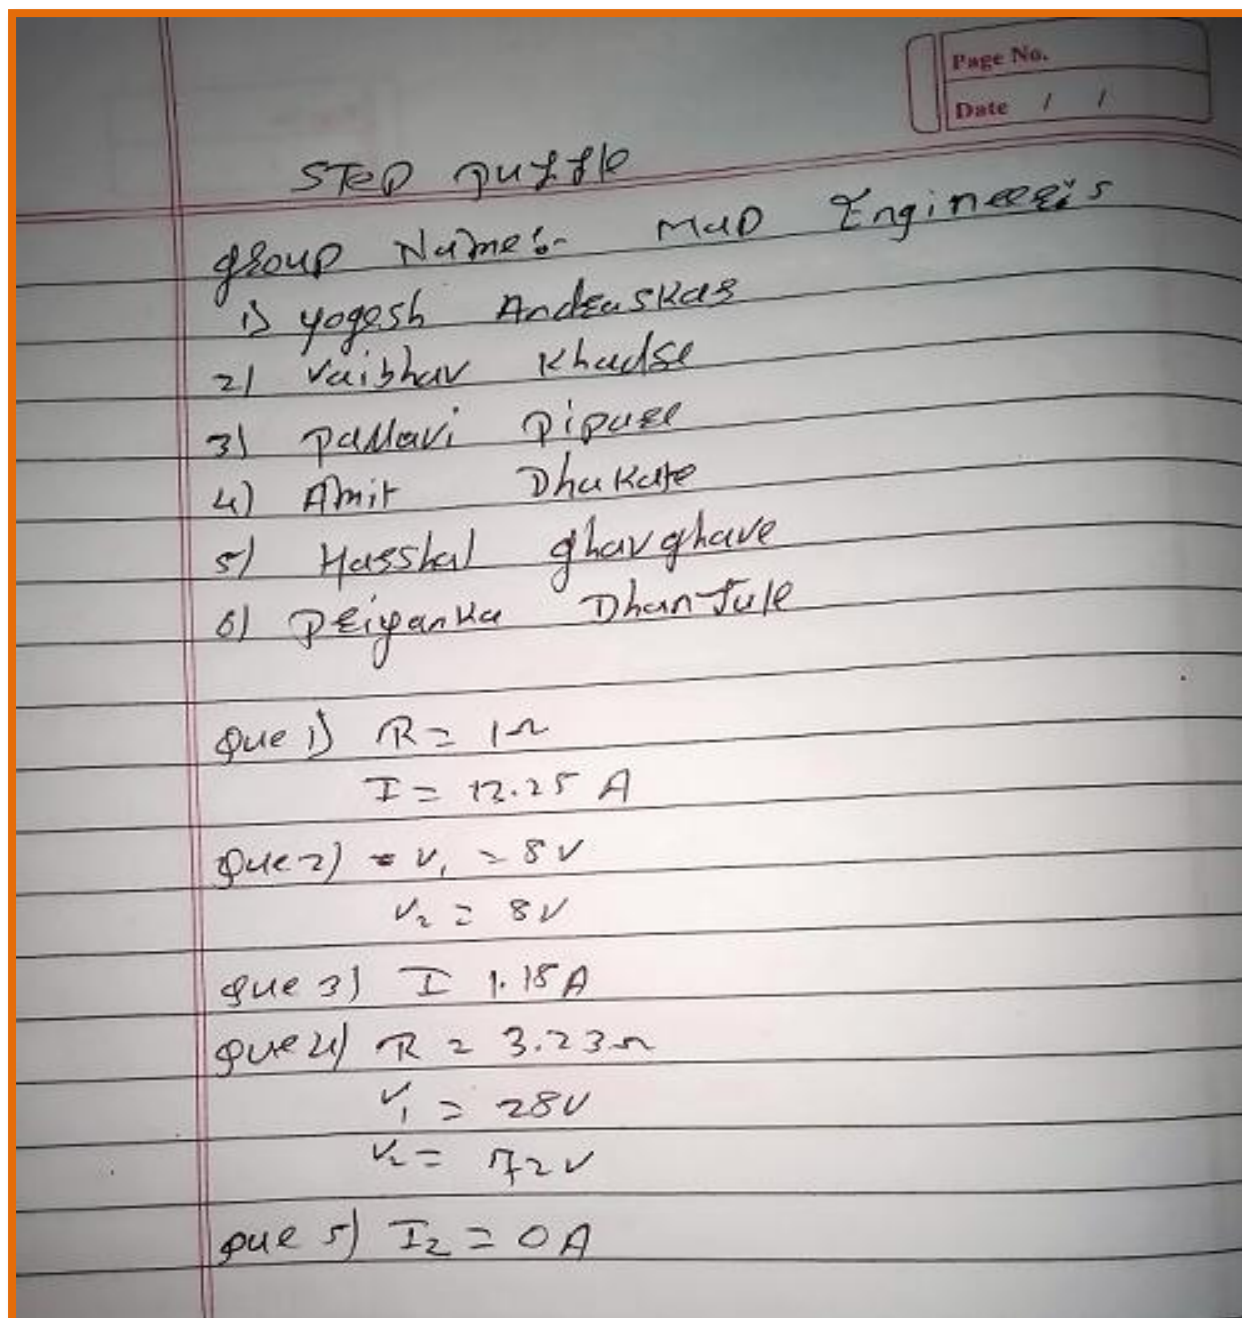 Page No.
Date / /
STEP puzzle
group Names:- MAD Engineers
1) yogesh Andraskar
2) Vaibhav Khadse
3) Pallavi Pipare
4) Amit Dhakate
5) Harshal ghavghave
6) Priyanka Dhanjule
Que 1) R = 1Ω
I = 12.25 A
Que 2) = V₁ = 8V
V₂ = 8V
Que 3) I 1.18A
Que 4) R = 3.23Ω
V₁ = 28V
V₂ = 72V
Que 5) I₂ = 0A